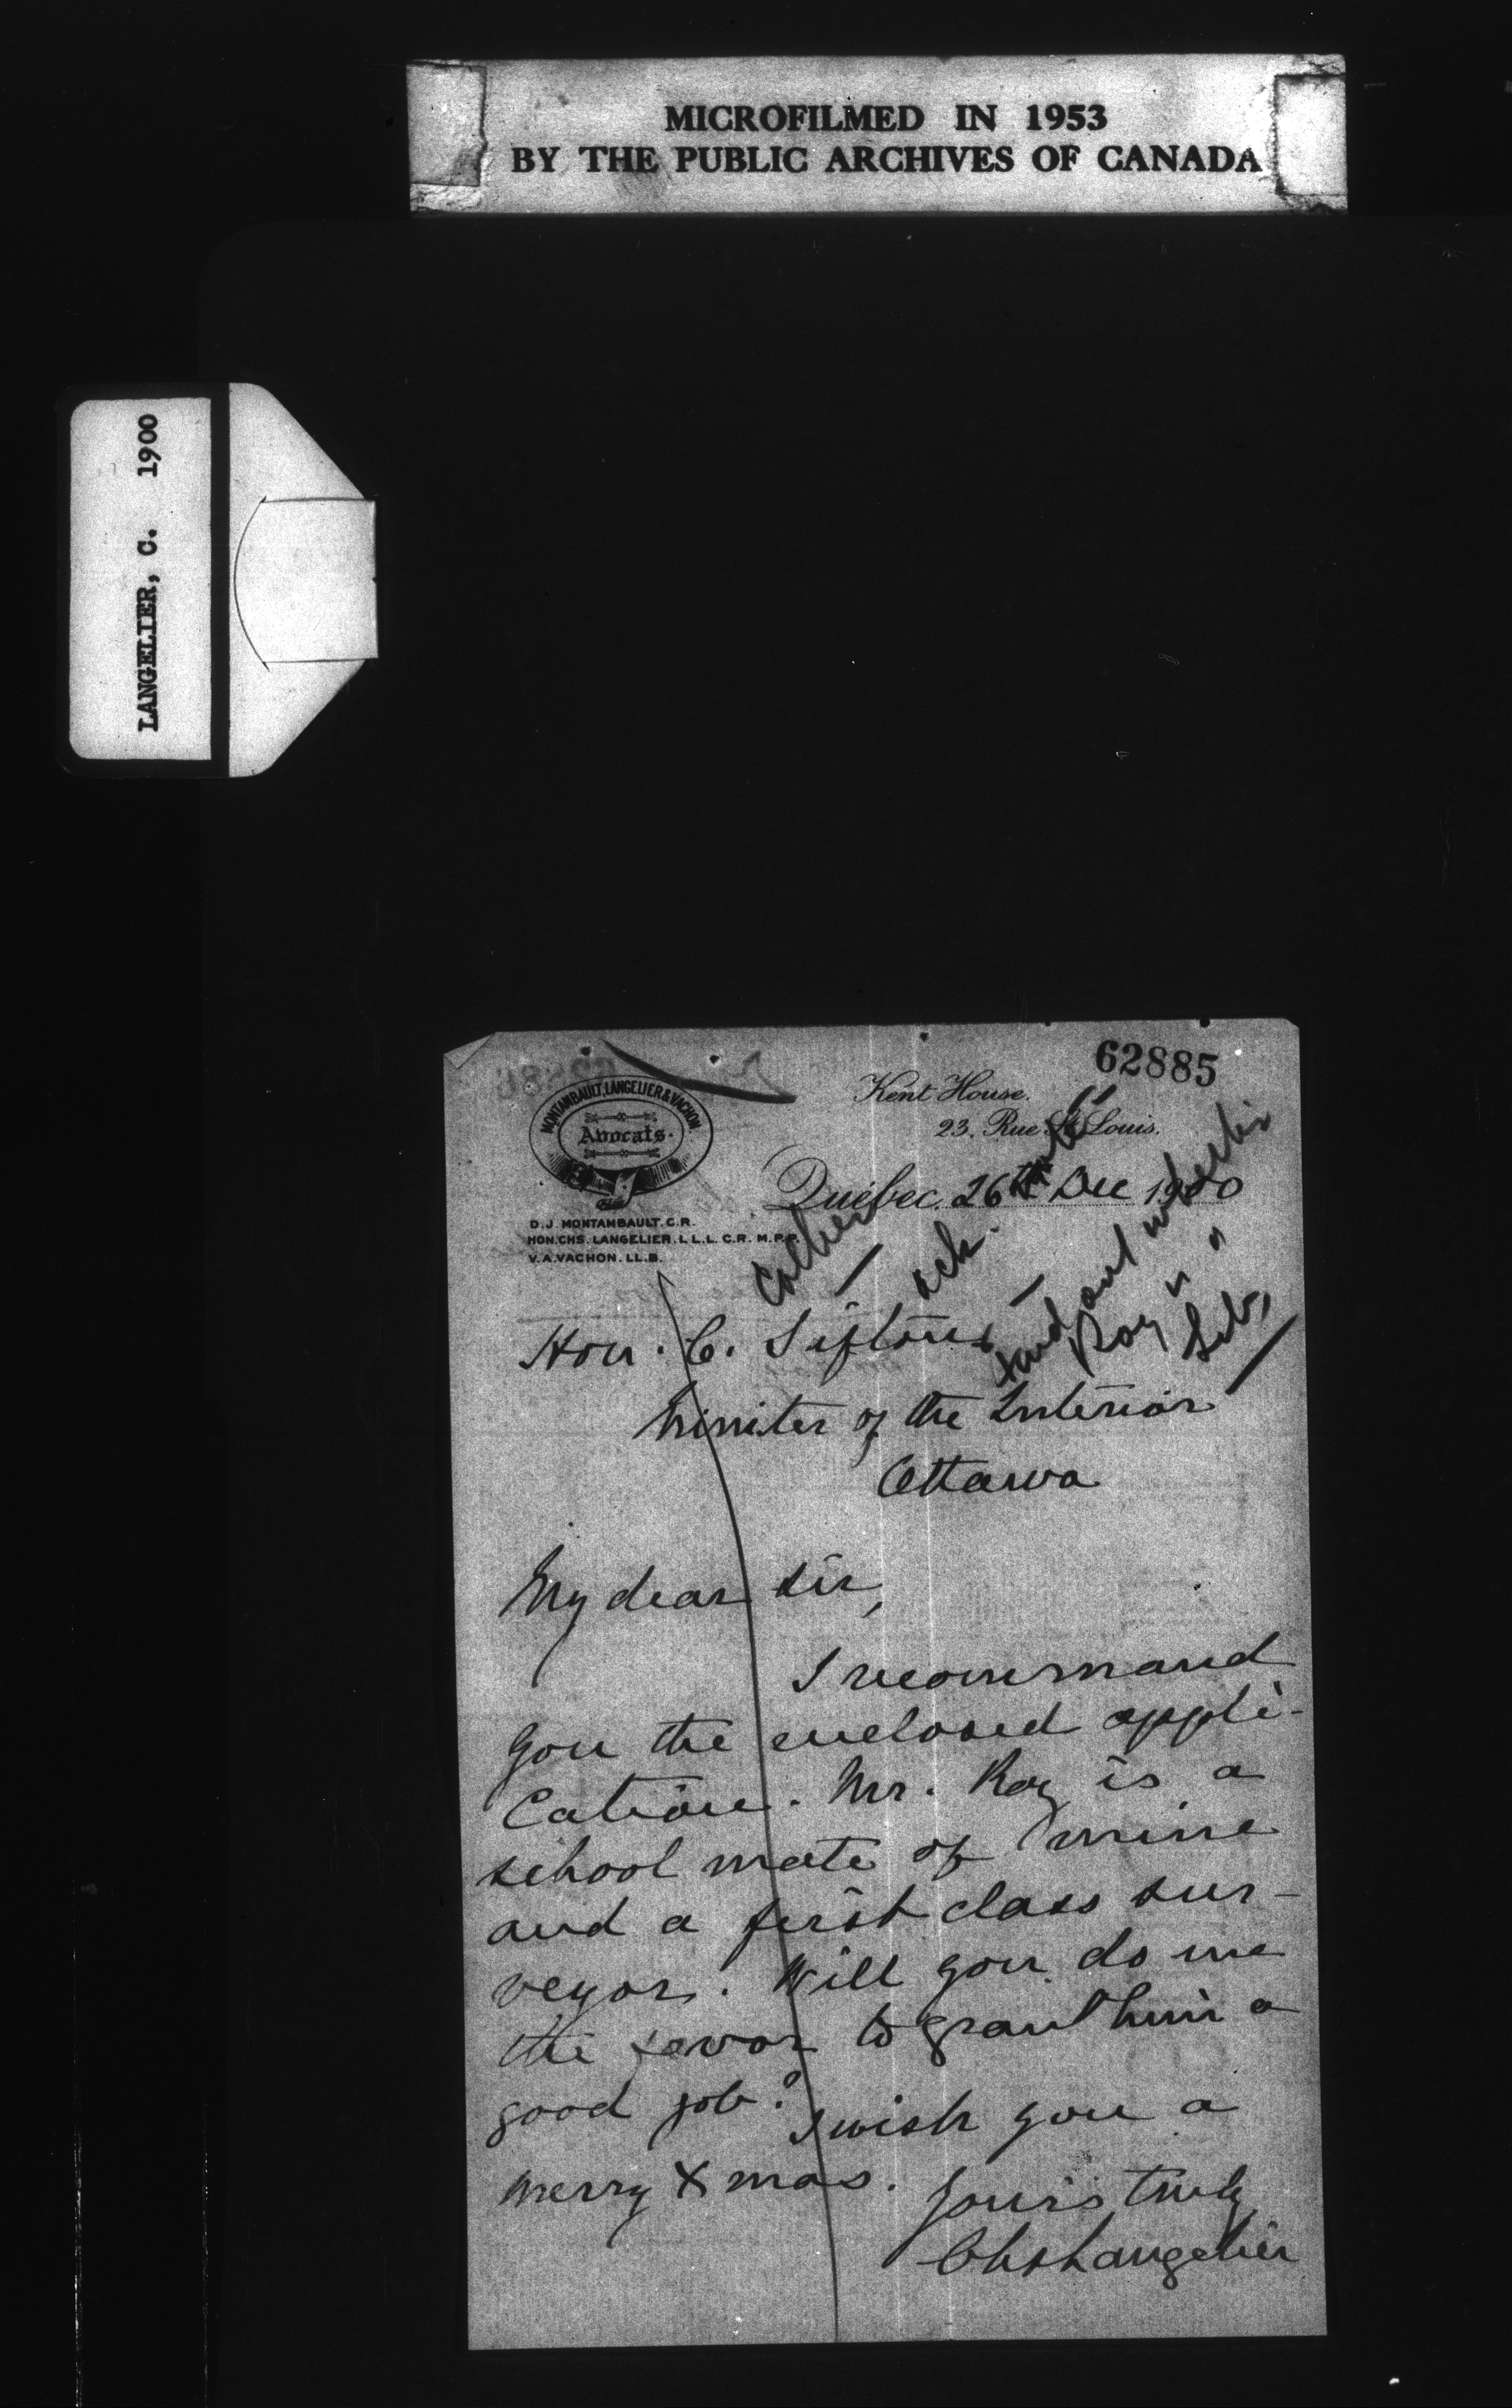 MICROFILMED IN 1953
BY THE PUBLIC ARCHIVES OF CANADA
LANGELIER, C. 1900
62885
MONTAMBAULT, LANGELIER & VACHON.
Avocats.
Kent House.
23, Rue St Louis.
Québec, 26th Dec 1900
D.J. MONTAMBAULT. C.R.
HON. CHS. LANGELIER. L.L.L. C.R. M.P.P.
V.A. VACHON. LL.B.
ack.
Roy " "
Hon. C. Sifton
Minister of the Interior
Ottawa
My dear sir,
I recommand
you the enclosed appli-
cation. Mr. Roy is a
school mate of mine
and a first class sur-
veyor. Will you do me
the favor to grant him a
good job?
I wish you a
merry Xmas.
Yours truly
Chs Langelier